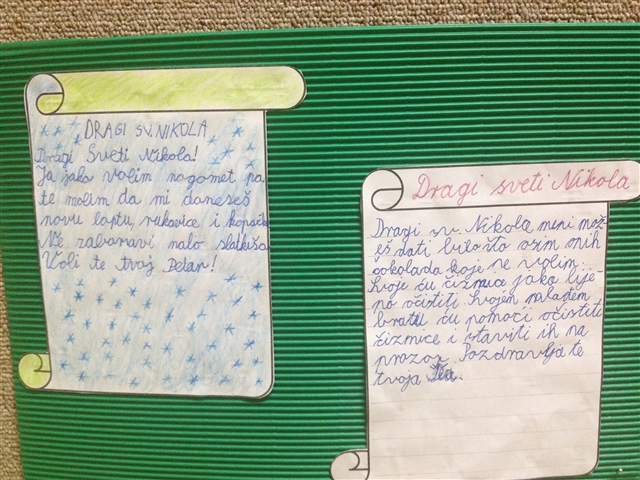 DRAGI SV. NIKOLA
Dragi Sveti Nikola!
Ja jako volim nogomet pa
te molim da mi doneseš
novu loptu, rukavice i kopačk
Ne zaboravi malo slatkiša
Voli te tvoj !
Dragi sveti Nikola
Dragi sv. Nikola meni mož
eš dati bilo što osim onih
čokolada koje ne volim.
Svoje ću čizmice jako lije-
po očistiti. Svojem mlađem
bratu ću pomoći očistiti
čizmice i staviti ih na
prozor. Pozdravlja te
tvoja